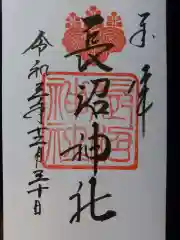 奉拝
長沼神社
令和五年十二月三十日